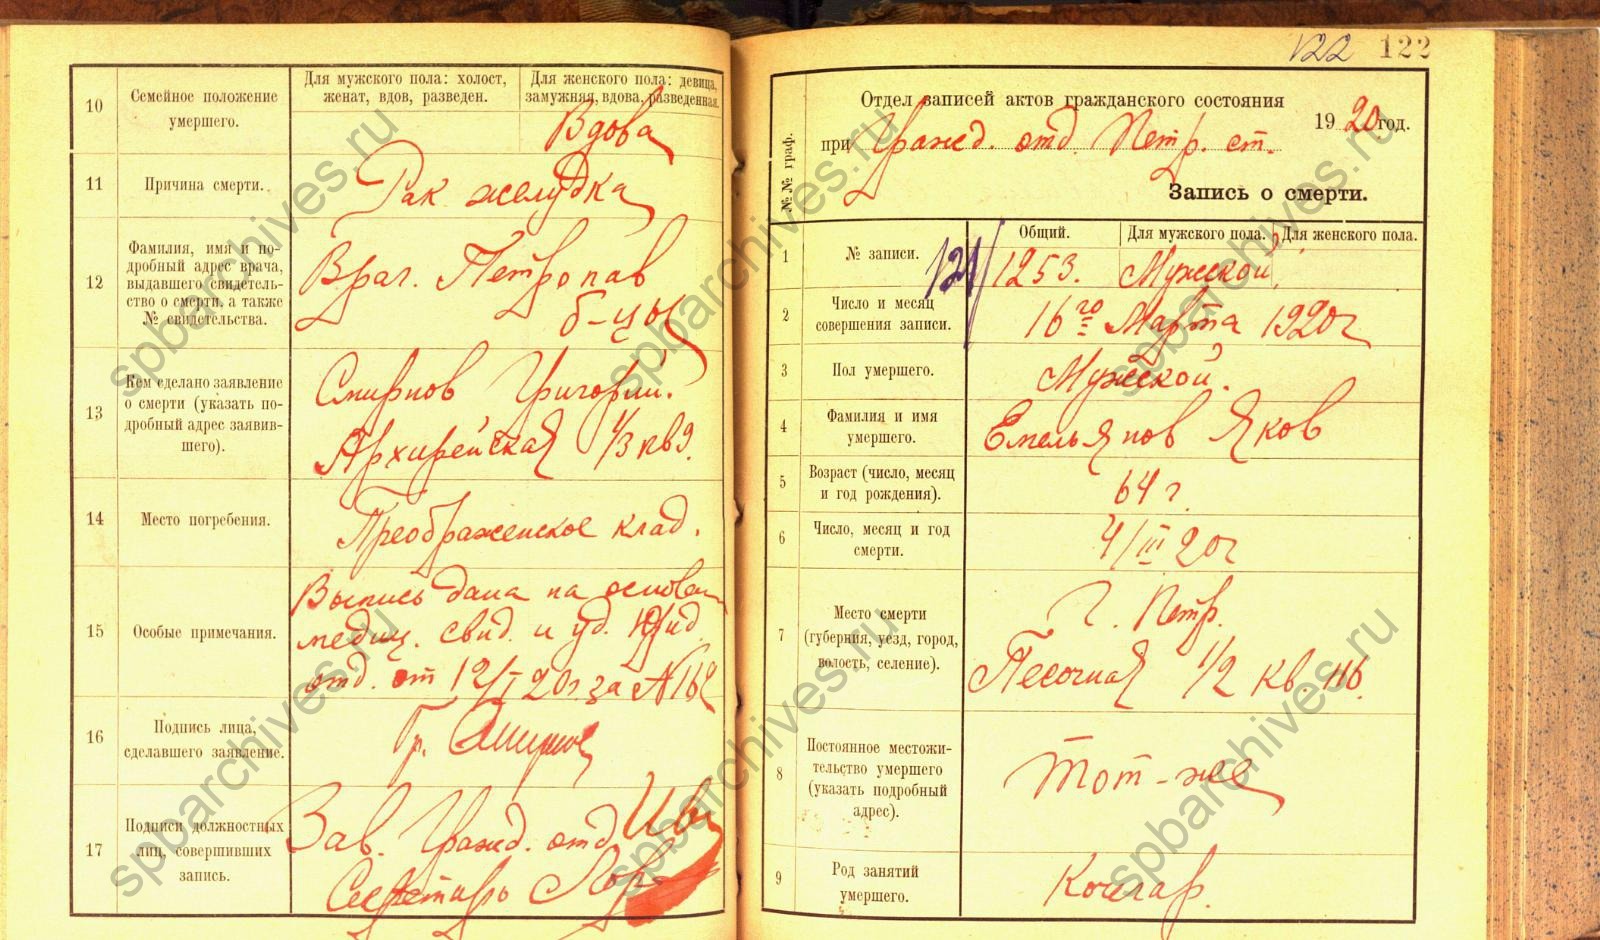 10
Семейное положение
умершего.
Для мужского пола: холост,
женат, вдов, разведен.
Для женского пола: девица,
замужняя, вдова, разведенная.
Вдова
11
Причина смерти.
Рак желудка
12
Фамилия, имя и по-
дробный адрес врача,
выдавшего свидетель-
ство о смерти, а также
№ свидетельства.
Врач. Петропав
б-цы
13
Кем сделано заявление
о смерти (указать по-
дробный адрес заявив-
шего).
Смирнов Григорий.
Архирейская 1/3 кв 9.
14
Место погребения.
Преображенское клад.
15
Особые примечания.
Выпись дана на основан
медиц. свид. и уд. Юрид.
отд. от 12/I 20г. за №162
16
Подпись лица,
сделавшего заявление.
Гр. Смирнов
17
Подписи должностных
лиц, совершивших
запись.
Зав. Гражд. отд
Секретарь
122 122
№№ граф.
Отдел записей актов гражданского состояния
при Гражд. отд. Петр. ст.
1920 год.
Запись о смерти.
1
№ записи.
Общий.
Для мужского пола.
Для женского пола.
121
1253.
Мужской
2
Число и месяц
совершения записи.
16го Марта 1920г
3
Пол умершего.
Мужской.
4
Фамилия и имя
умершего.
Емельянов Яков
5
Возраст (число, месяц
и год рождения).
64 г
6
Число, месяц и год
смерти.
4/III 20г
7
Место смерти
(губерния, уезд, город,
волость, селение).
г. Петр.
Песочная 1/2 кв. 116.
8
Постоянное местожи-
тельство умершего
(указать подробный
адрес).
Тот-же
9
Род занятий
умершего.
Кочегар.
spbarchives.ru
spbarchives.ru
spbarchives.ru
spbarchives.ru
spbarchives.ru
spbarchives.ru